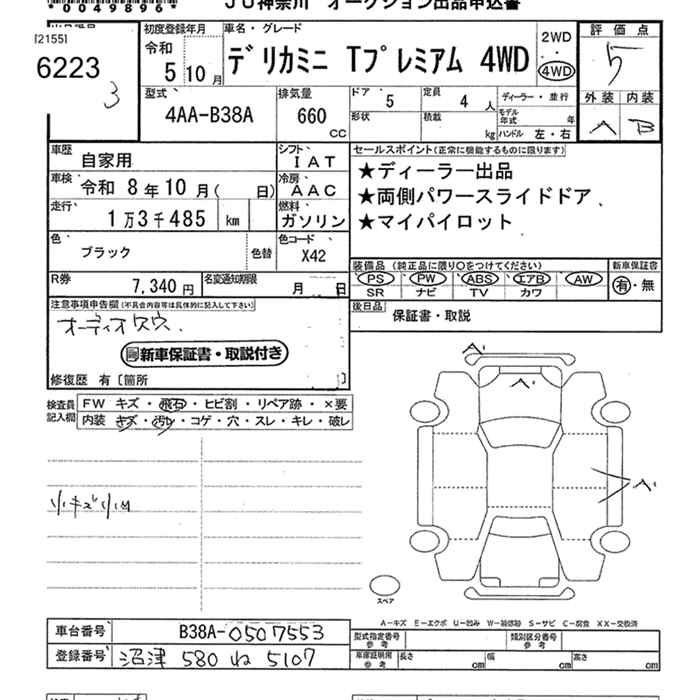 *0049896*
JU神奈川 オークション出品申込書
[2155]
6223
3
初度登録年月
令和
5 10 月
車名・グレード
デリカミニ Tプレミアム 4WD
2WD
4WD
評価点
5
外装 内装
A B
型式
4AA-B38A
排気量
660
CC
ドア
5
定員
4
人
形状
積載
kg
ディーラー・並行
モデル年式
年
ハンドル 左・右
車歴
自家用
シフト
IAT
車検
令和 8年10月( 日)
冷房
AAC
走行
1万3千485 km
燃料
ガソリン
色
ブラック
色替
色コード
X42
R券
7,340円
名変通知期限
月 日
セールスポイント(正常に機能するものに限ります)
★ディーラー出品
★両側パワースライドドア
★マイパイロット
装備品(純正品に限り○をつけてください)
PS PW ABS エアB AW
SR ナビ TV カワ
新車保証書
有・無
後日品
保証書・取説
注意事項申告欄(不具合内容等は具体的に記入して下さい)
オーディオレス、
新車保証書・取説付き
修復歴 有〔箇所 〕
検査員
記入欄
FW キズ・飛石・ヒビ割・リペア跡・×要
内装 キズ・汚れ・コゲ・穴・スレ・キレ・破レ
小キズ小凹
A'
A'
A'
スペア
A-キズ E-エクボ U-凹み W-補修跡 S-サビ C-腐食 XX-交換済
車台番号
B38A-0507553
登録番号
沼津 580 ね 5107
型式指定番号
参考
類別区分番号
参考
車庫証明用
参考
長さ cm 幅 cm 高さ cm